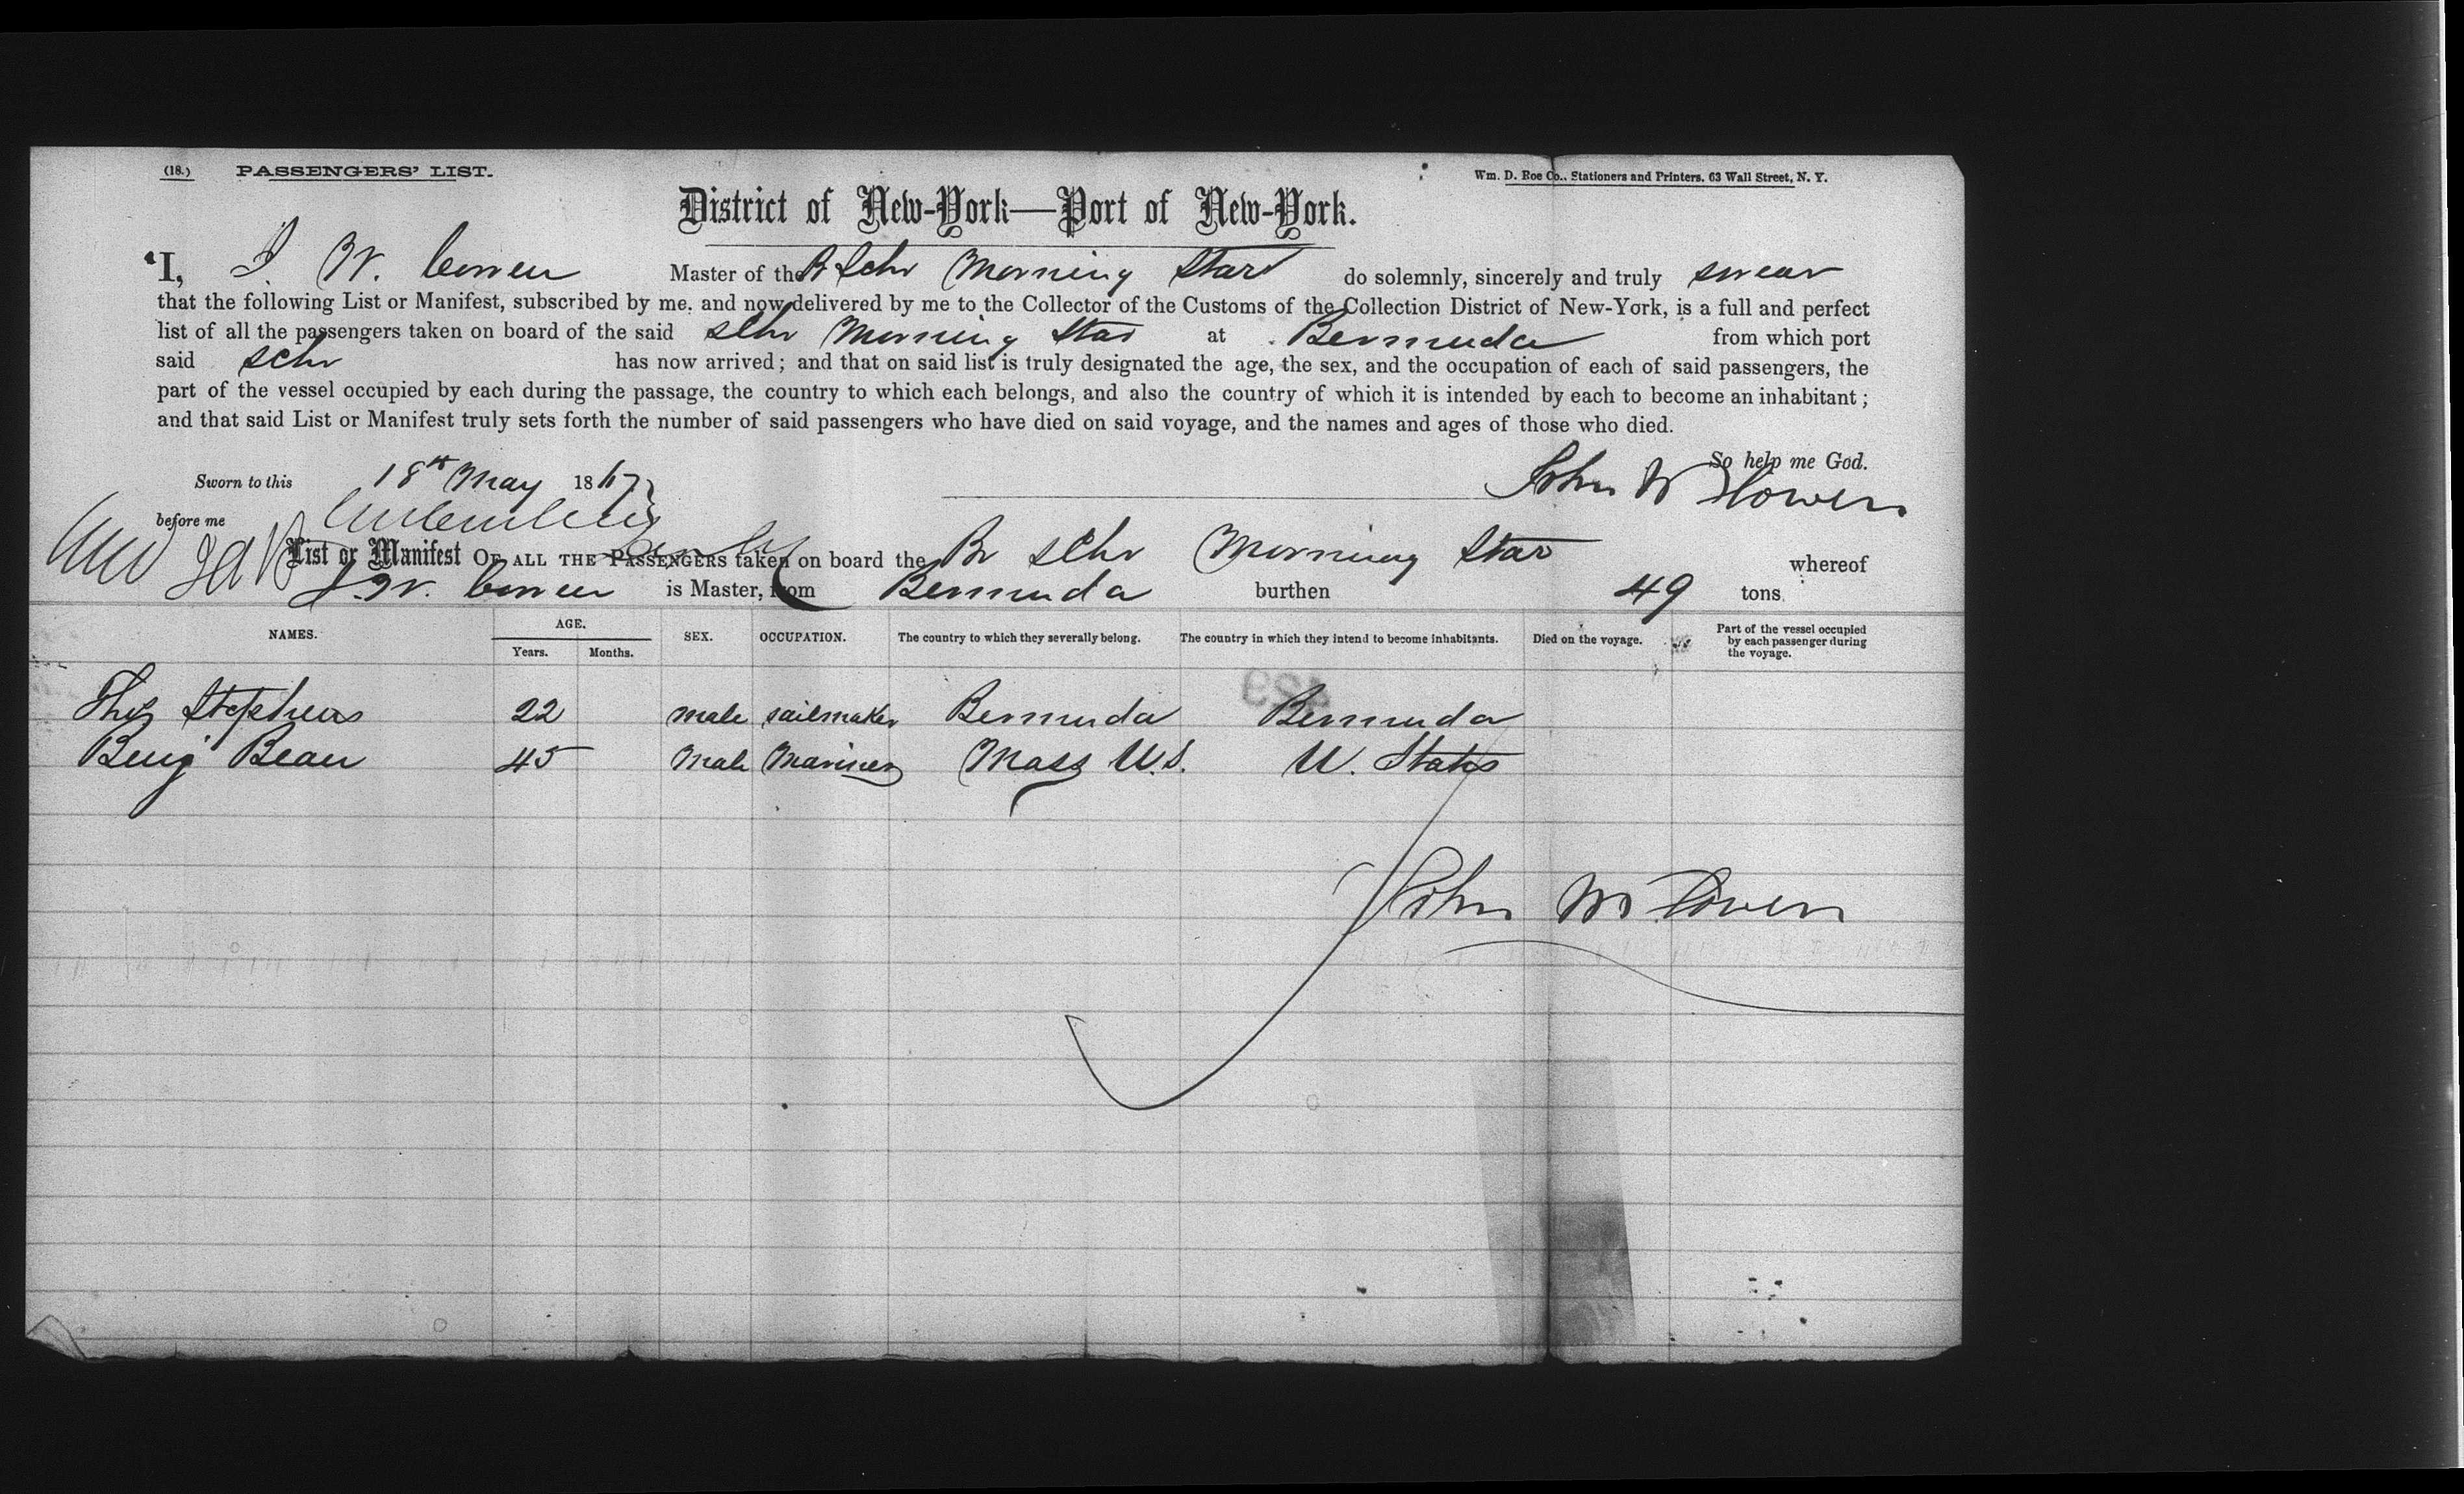 (18.) PASSENGERS' LIST. Wm. D. Roe Co., Stationers and Printers, 63 Wall Street, N. Y.
District of New-York—Port of New-York.
I, J W. Master of the B Schr Morning Star do solemnly, sincerely and truly swear
that the following List or Manifest, subscribed by me, and now delivered by me to the Collector of the Customs of the Collection District of New-York, is a full and perfect
list of all the passengers taken on board of the said schr Morning Star at Bermuda from which port
said schr has now arrived; and that on said list is truly designated the age, the sex, and the occupation of each of said passengers, the
part of the vessel occupied by each during the passage, the country to which each belongs, and also the country of which it is intended by each to become an inhabitant;
and that said List or Manifest truly sets forth the number of said passengers who have died on said voyage, and the names and ages of those who died.
So help me God.
Sworn to this 18th May 1867 John W
before me
List or Manifest OF ALL THE PASSENGERS taken on board the Br schr Morning Star whereof
J. W. is Master, from Bermuda burthen 49 tons.
NAMES. AGE. Years. Months. SEX. OCCUPATION. The country to which they severally belong. The country in which they intend to become inhabitants. Died on the voyage. Part of the vessel occupied by each passenger during the voyage.
Thos Stephens 22 male sailmaker Bermuda Bermuda
Benj Bean 45 Male Mariner Mass U.S. U. States
John W